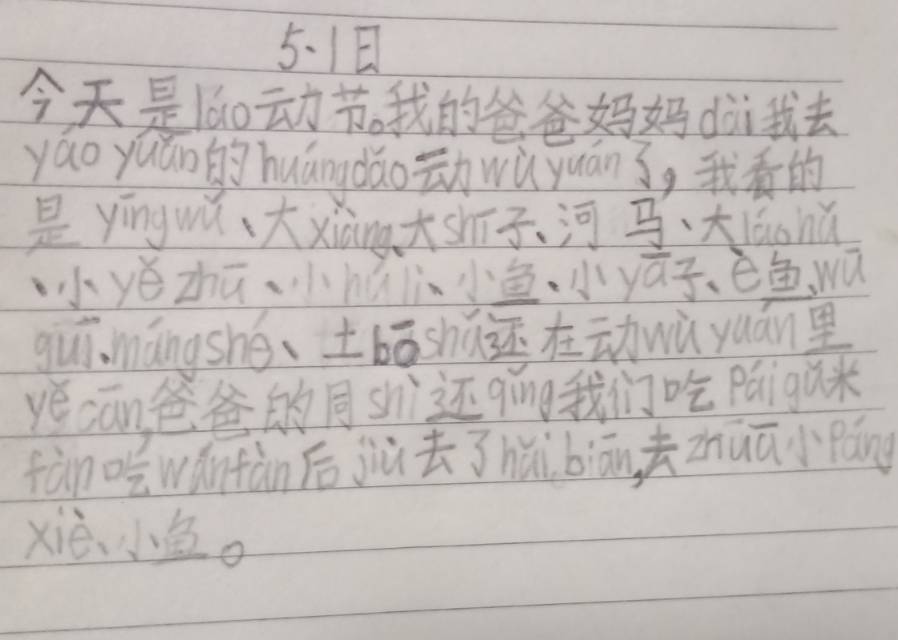 5·1日
今天是láo动节。我的爸爸妈妈dài我去
yáo yuǎn的huángdǎo动wù yuán了，我看的
是 yīngwǔ、大xiàng、大shī子、河 马、大láohǔ
、小yě zhū、小húli、小鱼、小yā子、è鱼、wū
guī、mángshé、土bōshǔ还在动wù yuán里
yě cān，爸爸的同shì还qǐng我们吃páigǔ米
fàn吃wǎnfàn后jiù去了hǎi biān，去zhuā小páng
xiè、小鱼。